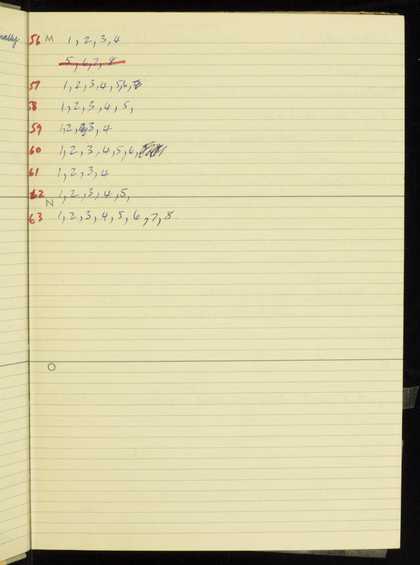 56 M 1, 2, 3, 4
5, 6, 7, 8
57 1, 2, 3, 4, 5, 6,
58 1, 2, 3, 4, 5,
59 1, 2, 3, 4
60 1, 2, 3, 4, 5, 6,
61 1, 2, 3, 4
62 1, 2, 3, 4, 5,
N
63 1, 2, 3, 4, 5, 6, 7, 8
O